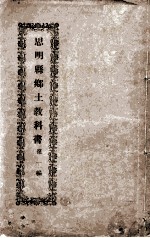 思明縣鄉土教科書